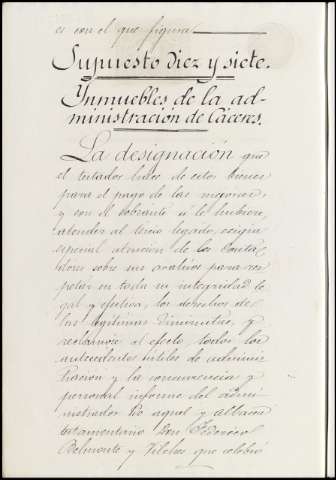 es con el que figura
Supuesto diez y siete.
Ynmuebles de la ad-
ministración de Cáceres.
La designación que
el testador hace de estos bienes
para el pago de las mejoras,
y con el sobrante si lo hubiere,
atender al tercio legado, exigía
especial atencion de los Conta-
dores sobre sus creativos para res
petar en toda su integridad le
gal y efectiva, los derechos de
las legítimas diminutas, y
reclamose al efecto, todos los
antecedentes útiles de adminis
tracion y la concurrencia y
personal informe del admi
nistrador de aquel y albacea
testamentario Don Federico
Belmonte y Vilches que celebró